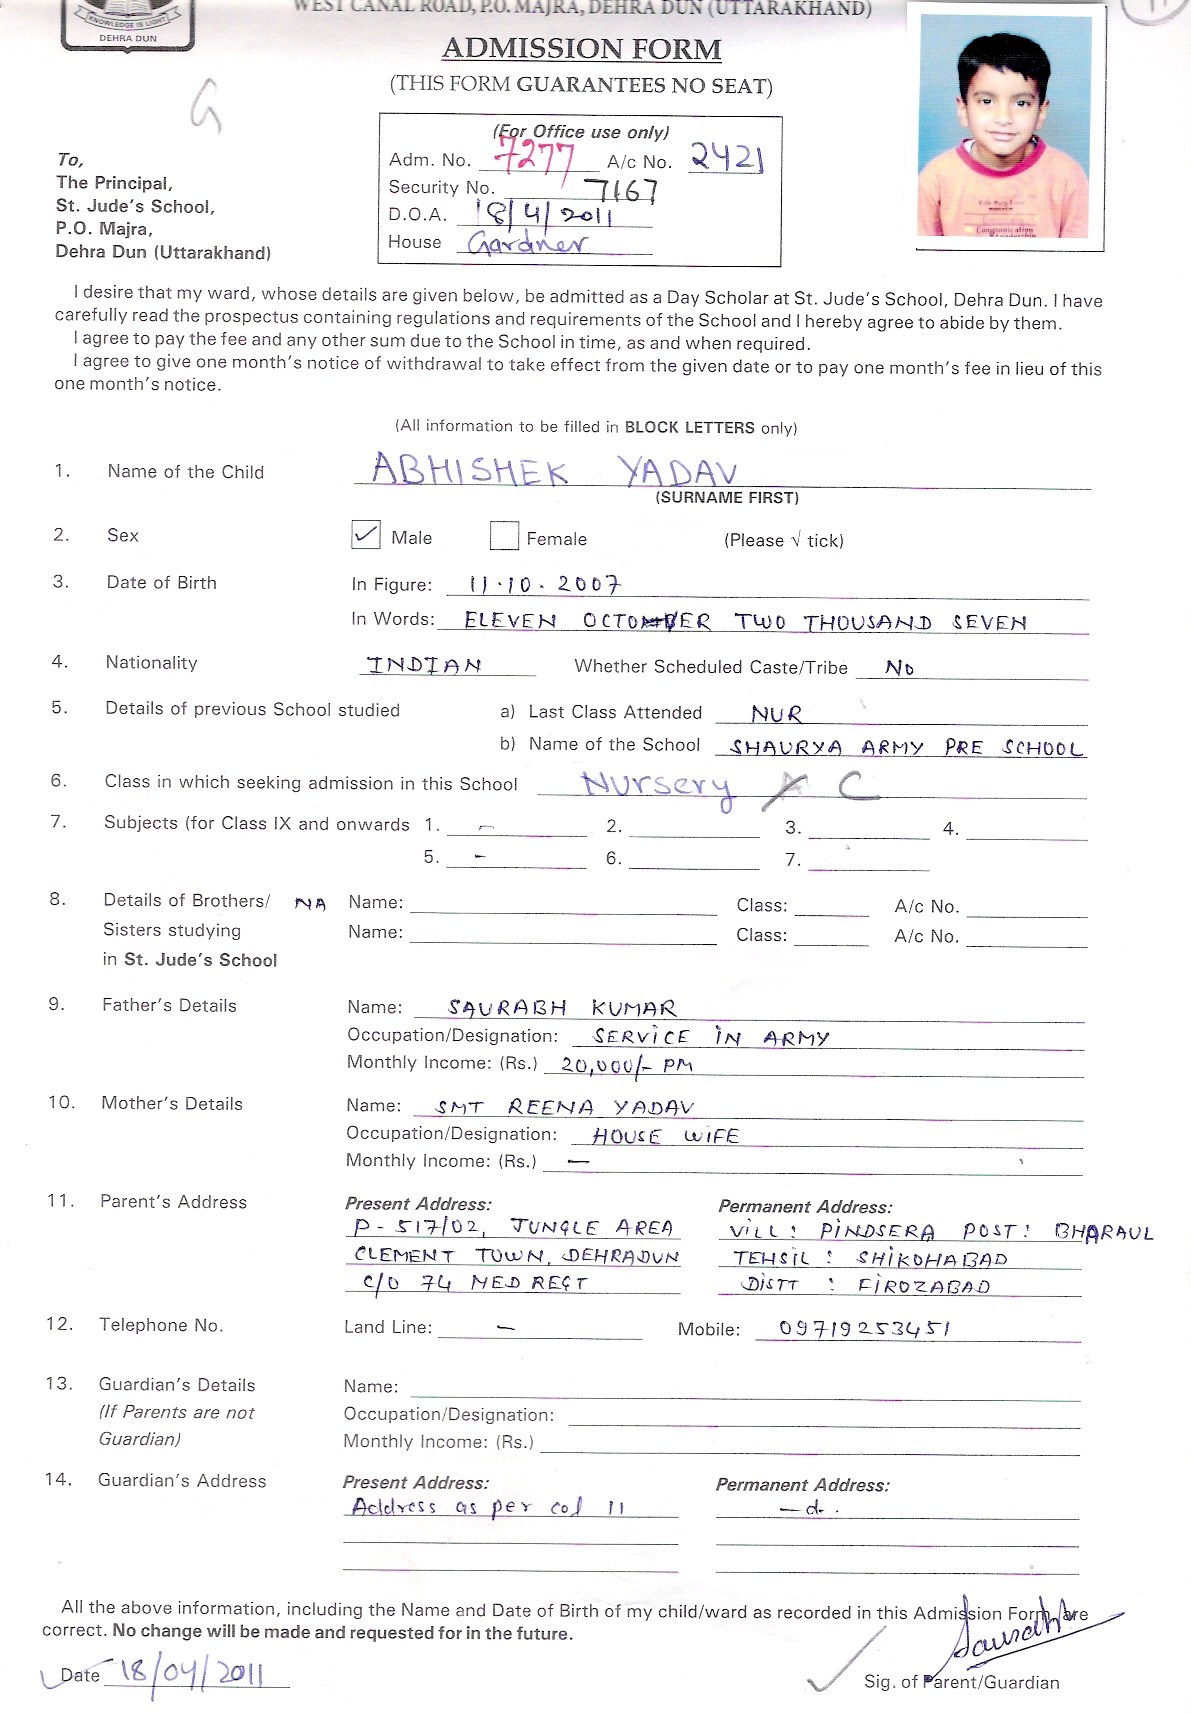 WEST CANAL ROAD, P.O. MAJRA, DEHRA DUN (UTTARAKHAND)
KNOWLEDGE IS LIGHT
DEHRA DUN
ADMISSION FORM
(THIS FORM GUARANTEES NO SEAT)
G
(For Office use only)
Adm. No. 7277 A/c No. 2421
Security No. 7167
D.O.A. 18/4/2011
House Gardner
To,
The Principal,
St. Jude's School,
P.O. Majra,
Dehra Dun (Uttarakhand)
I desire that my ward, whose details are given below, be admitted as a Day Scholar at St. Jude's School, Dehra Dun. I have
carefully read the prospectus containing regulations and requirements of the School and I hereby agree to abide by them.
I agree to pay the fee and any other sum due to the School in time, as and when required.
I agree to give one month's notice of withdrawal to take effect from the given date or to pay one month's fee in lieu of this
one month's notice.
(All information to be filled in BLOCK LETTERS only)
1. Name of the Child ABHISHEK YADAV
(SURNAME FIRST)
2. Sex ✓ Male Female (Please √ tick)
3. Date of Birth In Figure: 11.10.2007
In Words: ELEVEN OCTOBER TWO THOUSAND SEVEN
4. Nationality INDIAN Whether Scheduled Caste/Tribe No
5. Details of previous School studied a) Last Class Attended NUR
b) Name of the School SHAURYA ARMY PRE SCHOOL
6. Class in which seeking admission in this School Nursery A C
7. Subjects (for Class IX and onwards 1. - 2. 3. 4.
5. - 6. 7.
8. Details of Brothers/ NA Name: Class: A/c No.
Sisters studying Name: Class: A/c No.
in St. Jude's School
9. Father's Details Name: SAURABH KUMAR
Occupation/Designation: SERVICE IN ARMY
Monthly Income: (Rs.) 20,000/- PM
10. Mother's Details Name: SMT REENA YADAV
Occupation/Designation: HOUSE WIFE
Monthly Income: (Rs.) —
11. Parent's Address Present Address: Permanent Address:
P-517/02, JUNGLE AREA VILL: PINDSERA POST: BHARAUL
CLEMENT TOWN, DEHRADUN TEHSIL: SHIKOHABAD
C/O 74 MED REGT DISTT: FIROZABAD
12. Telephone No. Land Line: — Mobile: 09719253451
13. Guardian's Details Name:
(If Parents are not Occupation/Designation:
Guardian) Monthly Income: (Rs.)
14. Guardian's Address Present Address: Permanent Address:
Address as per col 11 —d.
All the above information, including the Name and Date of Birth of my child/ward as recorded in this Admission Form, are
correct. No change will be made and requested for in the future.
Saurabh
Date 18/04/2011 Sig. of Parent/Guardian